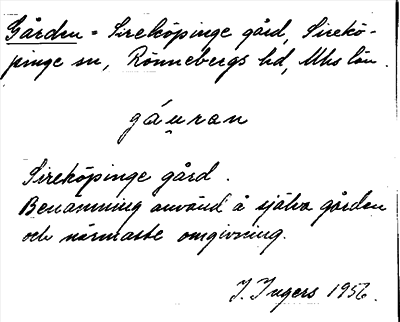 Gården = Sireköpinge gård, Sirekö-
pinge sn, Rönnebergs hd, Mhs län.
gáu̯ran
Sireköpinge gård.
Benämning använd å själva gården
och närmaste omgivning.
I. Ingers 1956.